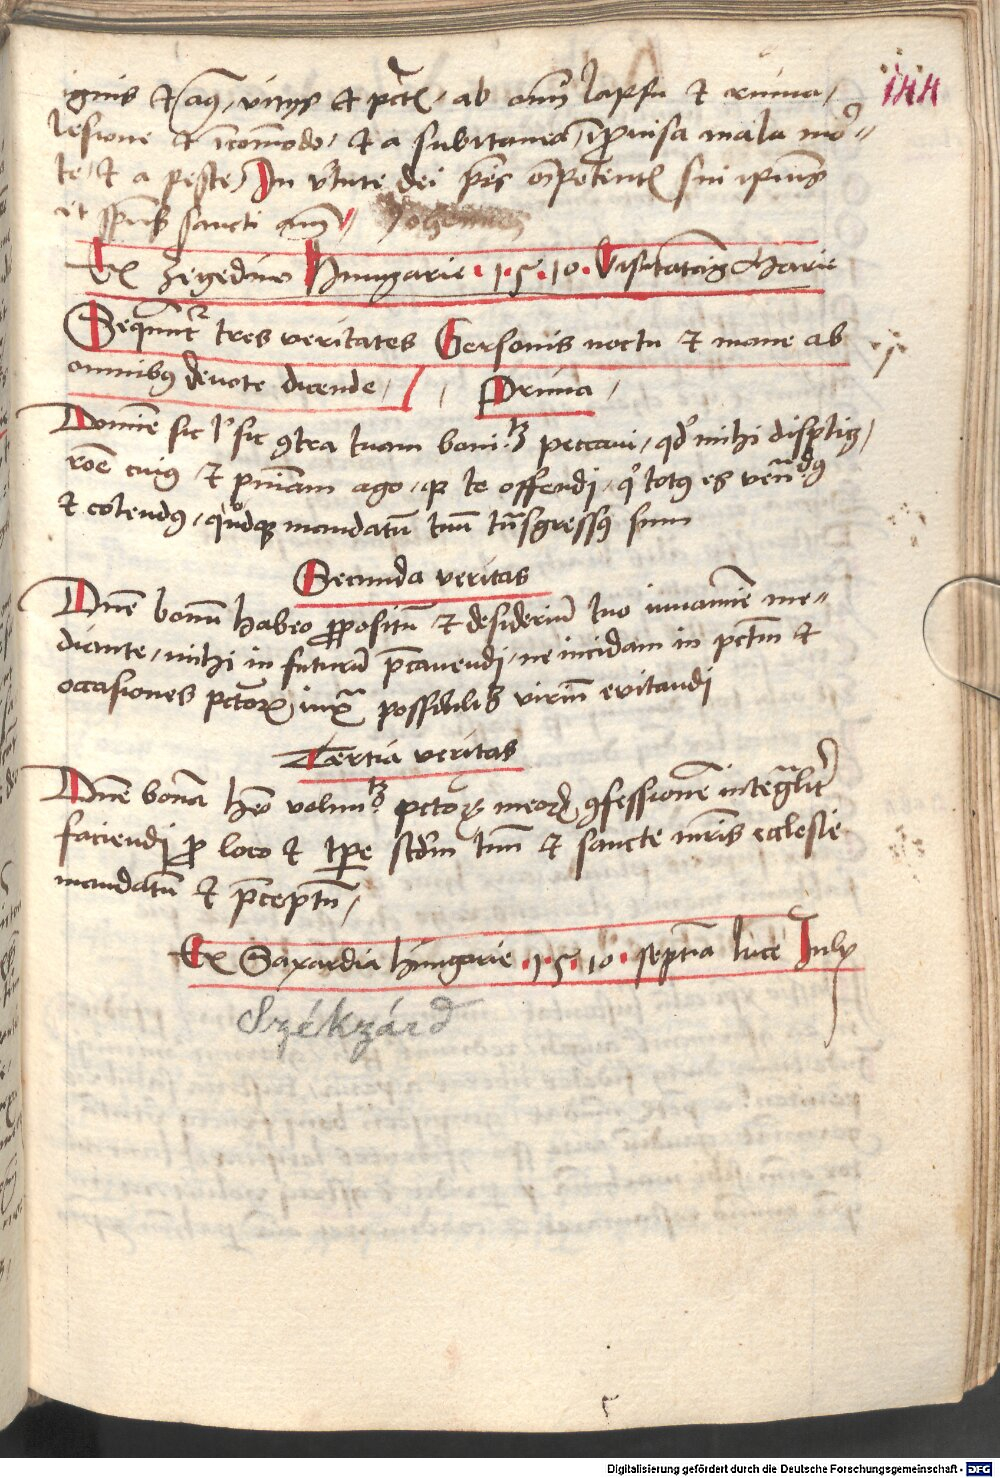 144
ignis et aq, vitijs et pctis, ab omni lapsu et ruina,
lesione et incomodo, et a subitanea, improuisa mala mor=
te, et a peste, In virtute dei pris omnipotentis filii ipsius
et spus sancti amen Johannes
Ex Zegedino Hungarie .1.5.10. Visitatois Marie
Sequuntur tres veritates Gersonis noctu et mane ab
omnibus deuote dicende,
Prima
Domine sic vel sic contra tuam boni.tem peccaui, qd mihi displicz,
roem cuius et pniam ago, quia te offendi, qui totus es venerandus
et colendus, quodque mandatum tuum transgressus sum
Secunda veritas
Dne bonum habeo propositum et desiderium tuo iuuamine me=
diante, mihi in futurum precauendi, ne incidam in pctm et
occasiones pctorum iuxta possibilis virium euitandi
Tertia veritas
Dne bonam heo volun.tem pctorum meorum confessionem integraliter
faciendi pro loco et tpe scdm tuum et sancte mris ecclesie
mandatum et preceptum,
Ex Saxardia hungarie .1.5.10. septima luce July
Székzárd
Digitalisierung gefördert durch die Deutsche Forschungsgemeinschaft - DFG